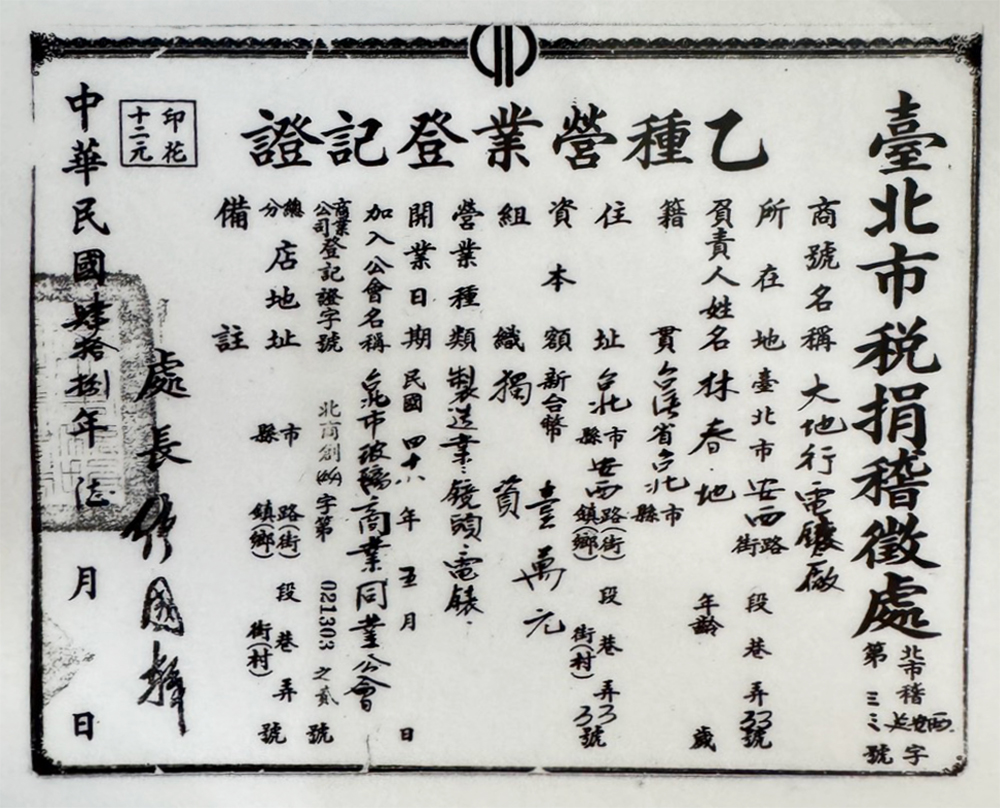 臺北市稅捐稽徵處
北市稽延西字
第三三號
乙種營業登記證
商號名稱 大地行電鐘廠
所在地 臺北市安西路街 段 巷 弄33號
負責人姓名 林春地 年齡 歲
籍貫 台灣省台北市縣
住址 台北市縣安西路(街)鎮(鄉) 段 巷街(村) 弄33號
資本額 新台幣 壹萬元
組織 獨資
營業種類 製造業:鏡頭、電錶
開業日期 民國四十八年五月 日
加入公會名稱 台北市玻璃商業同業公會
商業公司登記證字號 北商創 字第 021303 之貳號
總分店地址 市縣 路(街)鎮(鄉) 段 巷街(村) 弄 號
備註
處長
印花十二元
中華民國肆拾捌年 月 日